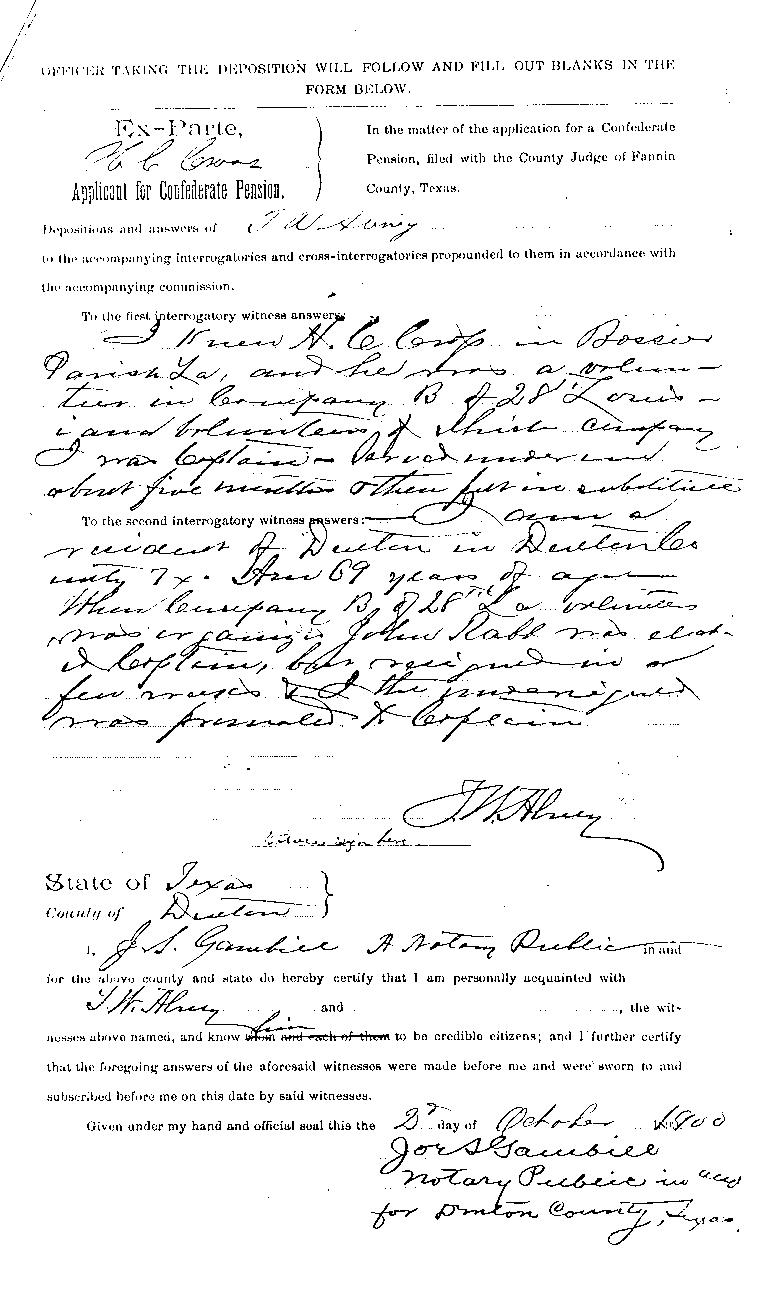 OFFICER TAKING THE DEPOSITION WILL FOLLOW AND FILL OUT BLANKS IN THE
FORM BELOW.
Ex-Parte,
H C Cross
Applicant for Confederate Pension.
In the matter of the application for a Confederate
Pension, filed with the County Judge of Fannin
County, Texas.
Depositions and answers of T W Abney
to the accompanying interrogatories and cross-interrogatories propounded to them in accordance with
the accompanying commission.
To the first interrogatory witness answers:
I Knew H. C Cross in Bossier
Parish La, and he was a volun-
teer in Company B of 28 Louis-
iana Volunteers, of which company
I was Captain - Served under me
about five months & then put in substitute
To the second interrogatory witness answers:— I am a
resident of Denton in Denton Co
unty Tx. Am 69 years of age
When Company B, of 28th La volunteers
was organized John Rabb was elect-
ed Captain, but resigned in a
few weeks & I the undersigned
was promoted to Captain
T. W. Abney
witness sign here
State of Texas
County of Denton
I, J. S. Gambill A Notary Public in and
for the above county and state do hereby certify that I am personally acquainted with
T. W. Abney and , the wit-
nesses above named, and know him and each of them to be credible citizens; and I further certify
that the foregoing answers of the aforesaid witnesses were made before me and were sworn to and
subscribed before me on this date by said witnesses.
Given under my hand and official seal this the 2d day of October 1900
Joe S Gambill
Notary Public in and
for Denton County, Texas.